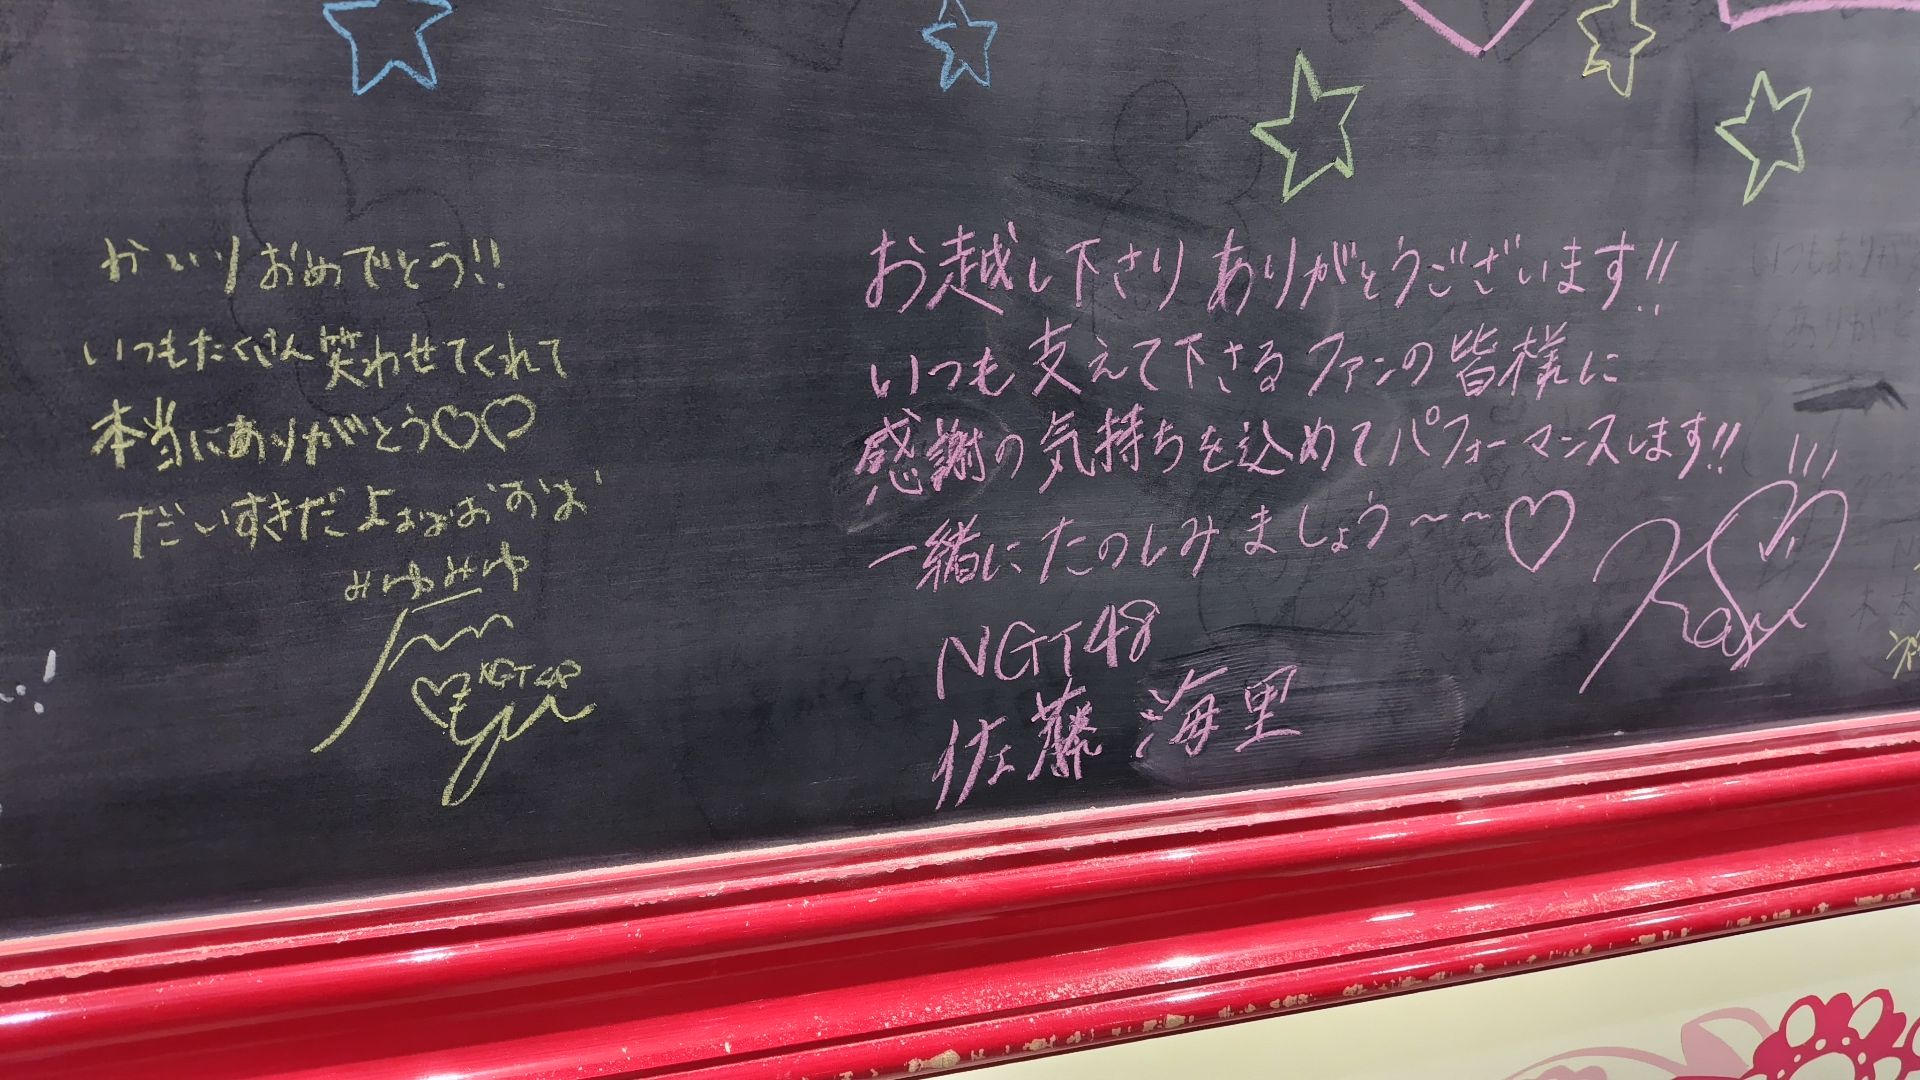 かいりおめでとう!!
いつもたくさん笑わせてくれて
本当にありがとう♡♡
だいすきだよぉぉぉぉぉぉ
みゆみゆ
NGT48
お越し下さり ありがとうございます!!
いつも支えて下さるファンの皆様に
感謝の気持ちを込めてパフォーマンスします!!
一緒にたのしみましょう〜〜♡
NGT48
佐藤 海里
いつもありが
ありがと